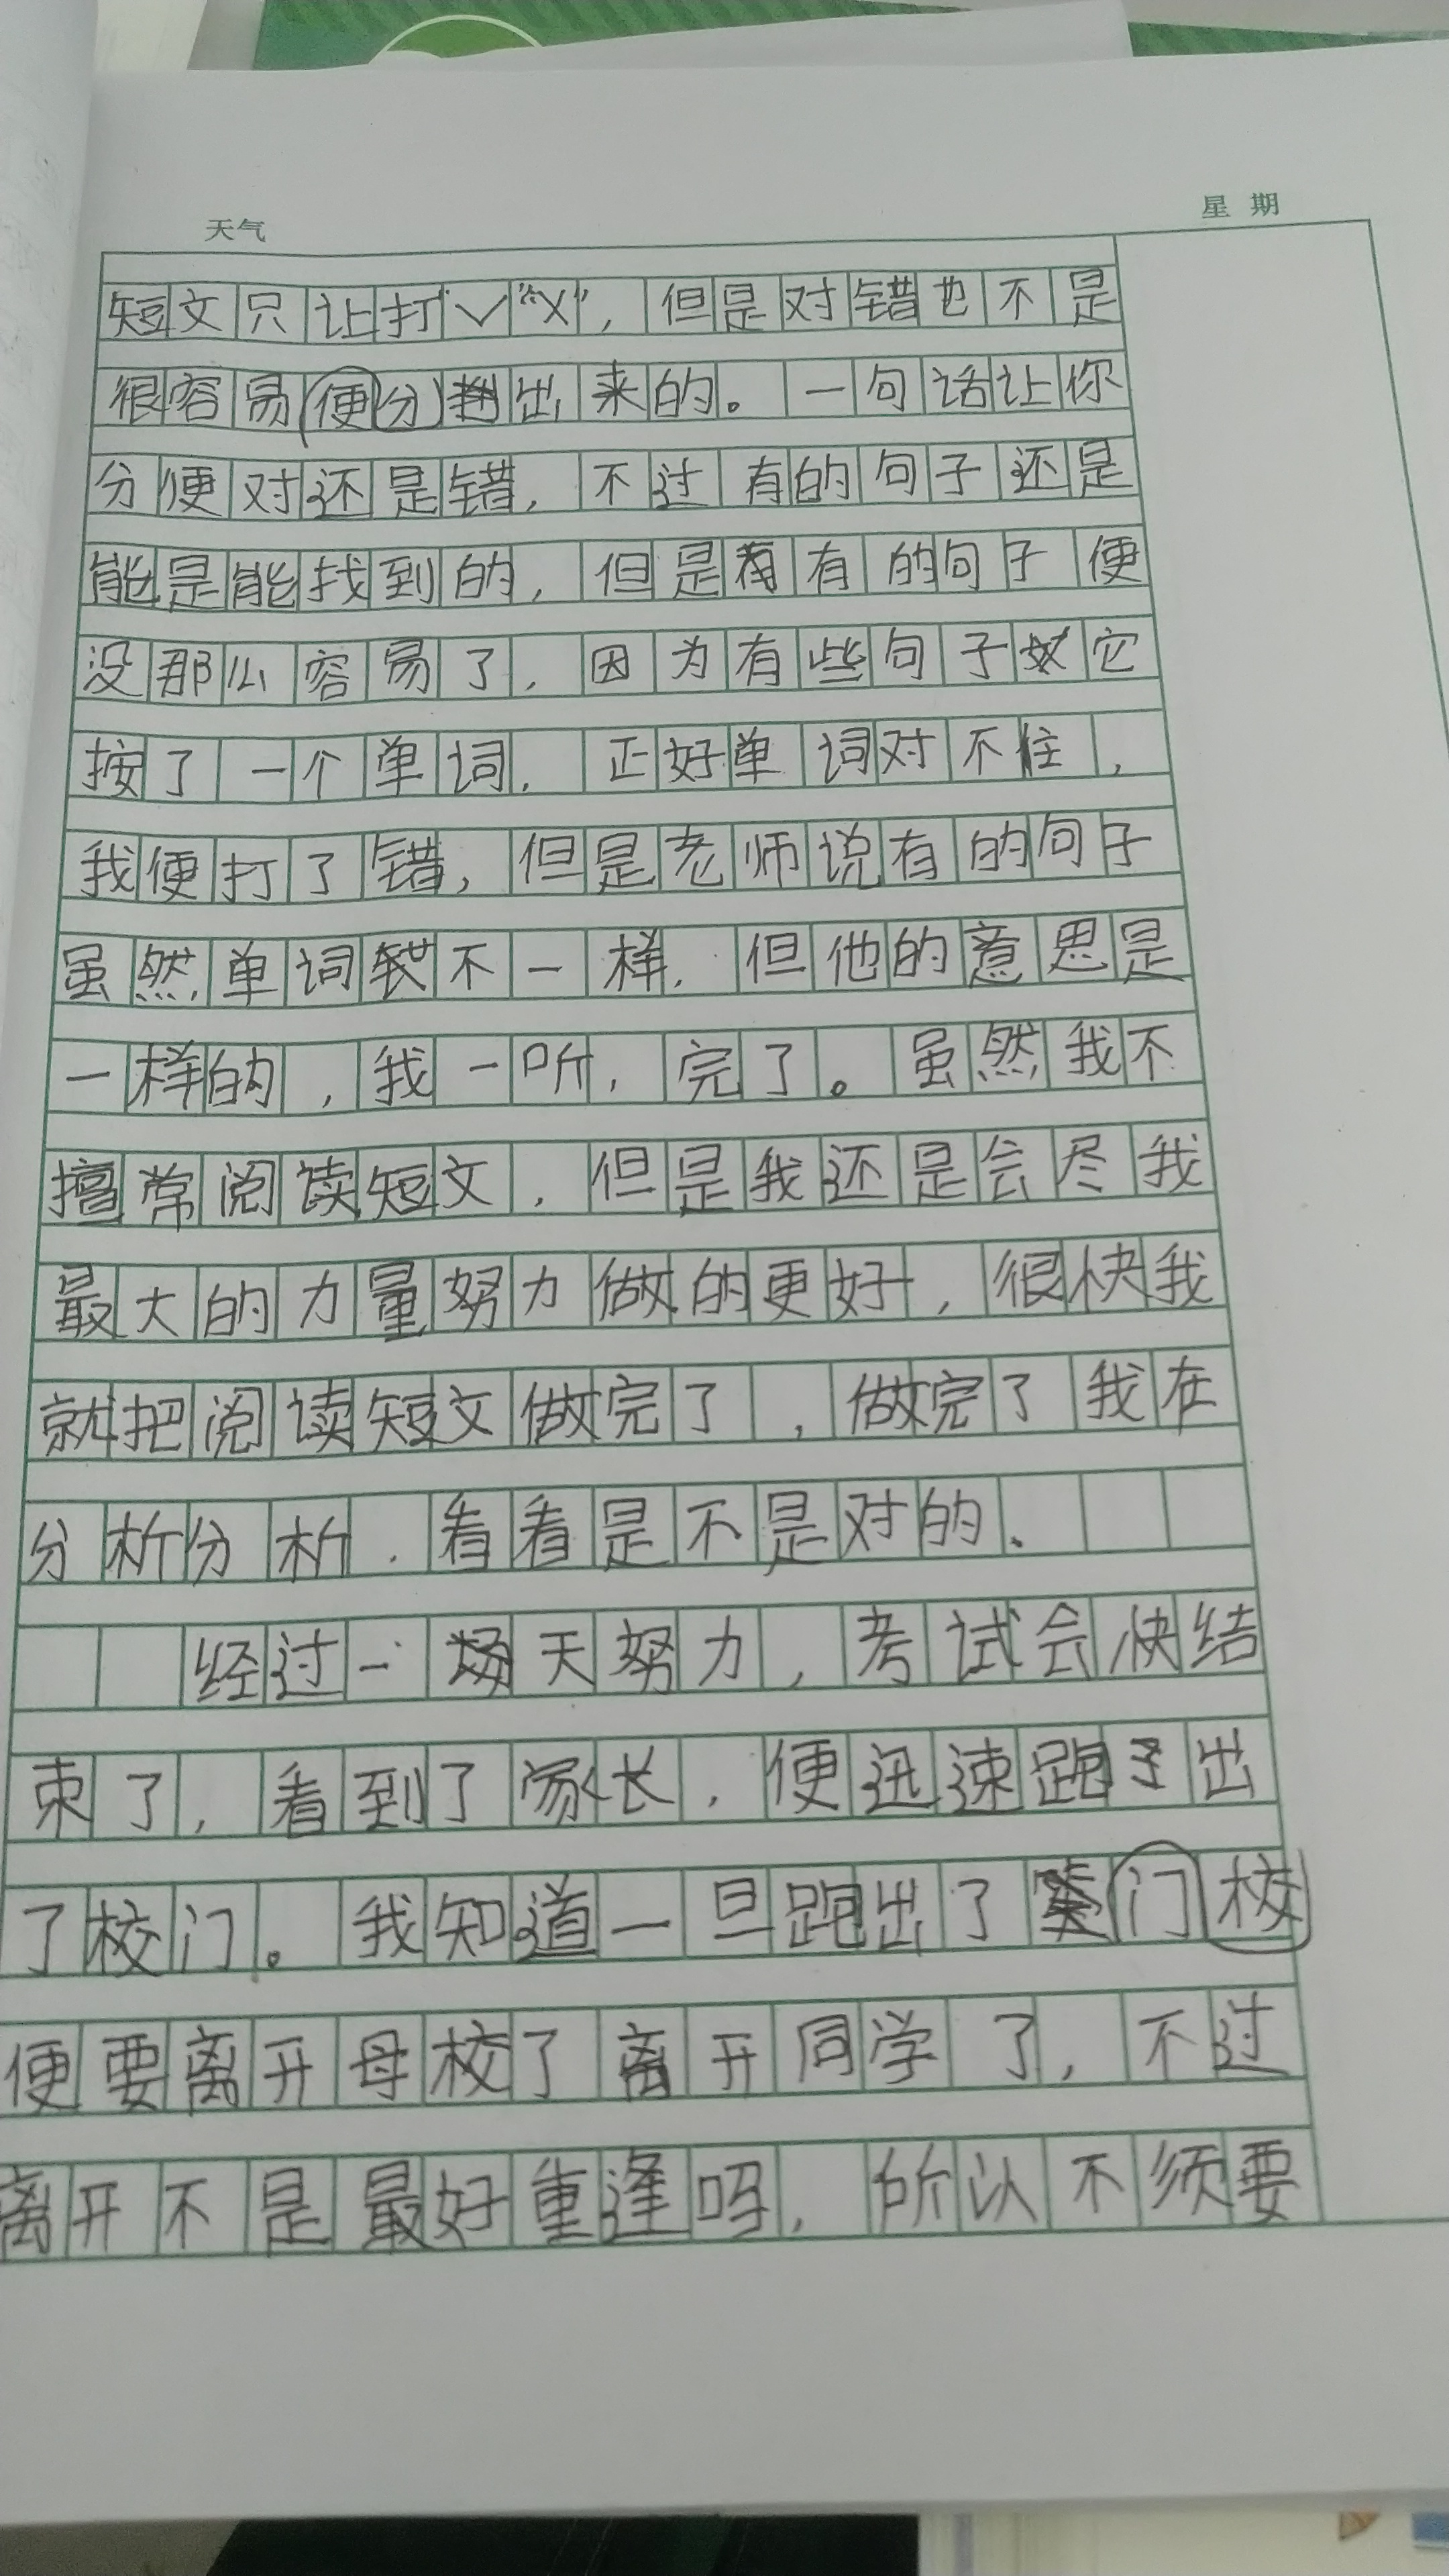 天气 星期
短文只让打"✓""X",但是对错也不是
很容易便分出来的。一句话让你
分便对还是错,不过有的句子还是
能是能找到的,但是有的句子便
没那么容易了,因为有些句子它
按了一个单词,正好单词对不住,
我便打了错,但是老师说有的句子
虽然单词不一样,但他的意思是
一样的,我一听,完了。虽然我不
擅常阅读短文,但是我还是会尽我
最大的力量努力做的更好,很快我
就把阅读短文做完了,做完了我在
分析分析,看看是不是对的。
经过一天努力,考试会快结
束了,看到了家长,便迅速跑出
了校门。我知道一旦跑出了门校
便要离开母校了离开同学了,不过
离开不是最好重逢吗,所以不须要